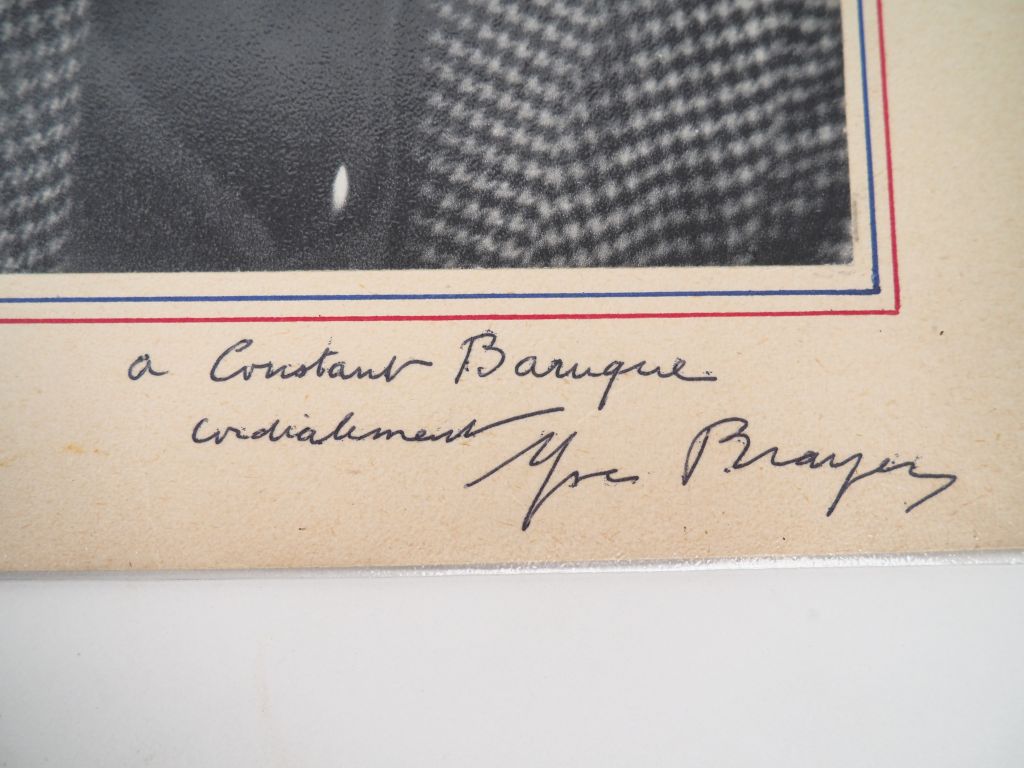 a Constant Baruque
cordialement Yves Brayer